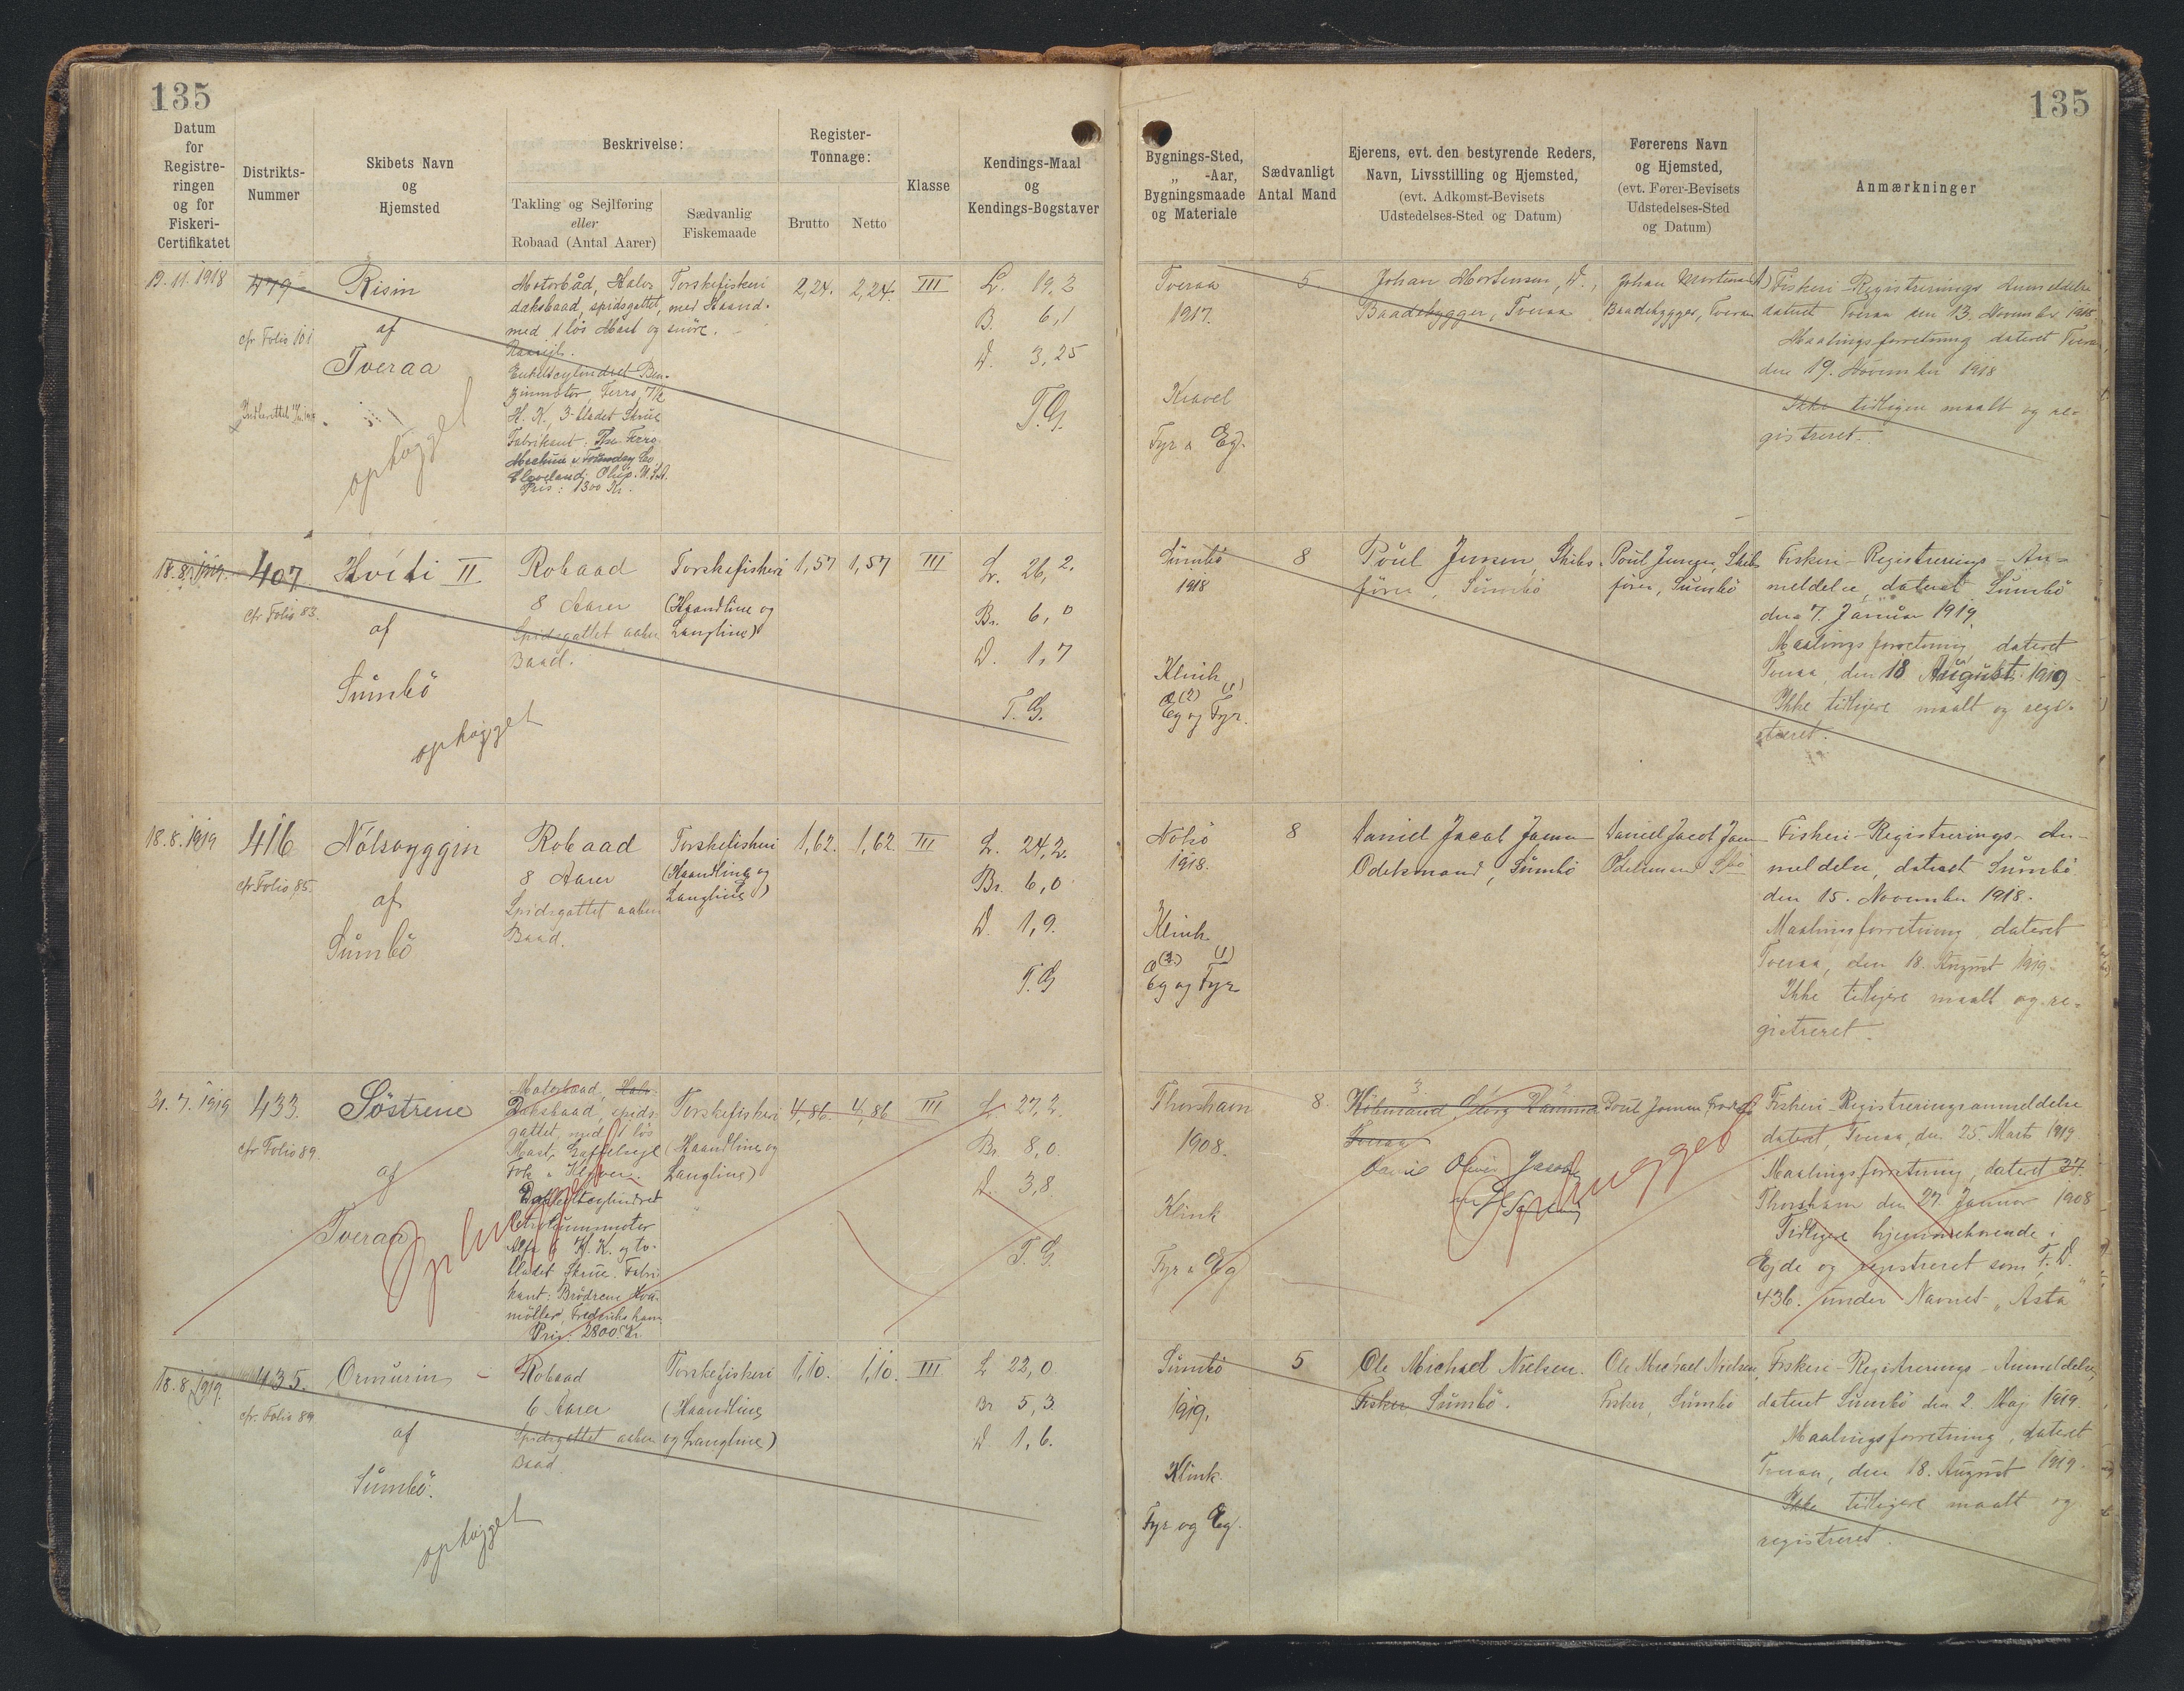 135
135
Datum
for
Registre-
ringen
og for
Fiskeri-
Certifikatet
Distrikts-
Nummer
Skibets Navn
og
Hjemsted
Beskrivelse:
Takling og Sejlføring
eller
Robaad (Antal Aarer)
Sædvanlig
Fiskemaade
Register-
Tonnage:
Brutto
Netto
Klasse
Kendings-Maal
og
Kendings-Bogstaver
Bygnings-Sted,
„ -Aar,
Bygningsmaade
og Materiale
Sædvanligt
Antal Mand
Ejerens, evt. den bestyrende Reders,
Navn, Livsstilling og Hjemsted,
(evt. Adkomst-Bevisets
Udstedelses-Sted og Datum)
Førerens Navn
og Hjemsted,
(evt. Fører-Bevisets
Udstedelses-Sted
og Datum)
Anmærkninger
19.11.1918
479
cfr Folio 101
Risin
af
Tveraa
ophogget
Motorbåd, Halv
daksbaad, spidsgattet,
med 1 løs Mast og
Enkeltcylindret Ben-
zinmotor, Ferro, 7½
H. K., 3-bladet Skrue
Fabrikant: The Ferro
Machine & Foundry Co
Cleveland, Ohio. U.S.A.
Pris: 1300 Kr.
Torskefiskeri
med Haand-
snöre.
2,24.
2,24.
III
L. 19,2
B. 6,1
D. 3,25
T.G.
Tveraa
1917.
Kravel
Fyr & Eg.
5
Johan Mortensen, D.,
Baadebygger, Tveraa
Johan Mortensen
Baadebygger, Tveraa
Fiskeri-Registrerings Anmeldelse
dateret Tveraa den 13. November 1918
Maalingsforretning dateret Tveraa,
den 19. November 1918
Ikke tidligere maalt og re-
gistreret.
18.8.1919.
407
cfr Folio 83.
Hvíti II
af
Sumbö
ophogget
Robaad
8 Aarer
Spidsgattet aaben
Baad.
Torskefiskeri
(Haandline og
Langline)
1,57
1,57
III
L. 26,2.
Br. 6,0
D. 1,7
T.G.
Sumbö
1918
Klink
(2) (1)
Eg og Fyr.
8
Poul Jensen, Skibs-
förer, Sumbö
Poul Jensen, Skibs
förer, Sumbö
Fiskeri-Registrerings-An-
meldelse, dateret Sumbö
den 7. Januar 1919.
Maalingsforretning, dateret
Tveraa, den 18 August 1919
Ikke tidligere maalt og regi-
streret.
18.8.1919
416
cfr Folio 85.
Nólsoyggin
af
Sumbö
Robaad
8 Aarer
Spidsgattet aaben
Baad.
Torskefiskeri
(Haandline og
Langline)
1,62.
1,62.
III
L. 24,2.
Br. 6,0
D. 1,9.
T.G
Nolsö
1918.
Klink
(2) (1)
Eg og Fyr
8
Daniel Jacob Joensen
Odelsmand, Sumbö
Daniel Jacob Joen
Odelsmand
Fiskeri-Registrerings-An-
meldelse, dateret Sumbö
den 15. November 1918.
Maalingsforretning, dateret
Tveraa, den 18. August 1919.
Ikke tidligere maalt og re-
gistreret.
31.7.1919
433.
cfr Folio 89.
Söstrene
af
Tveraa
Ophugget
Motorbaad, Halv-
Daksbaad, spids-
gattet, med 1 løs
Mast, Gaffelsejl
Fok & Klyver.
Dobbeltcylindret
Petroleumsmotor
Alfa 6 H.K. og to-
bladet Skrue. Fabri-
kant: Brödrene Hou-
möller, Frederikshavn
Pris: 2800 Kr.
Torskefiskeri
(Haandline og
Langline)
4,86.
4,86
III
L. 27,2.
Br. 8,0.
D. 3,8.
T.G
Thorshavn
1908.
Klink
Fyr & Eg
8.
Købmand Georg
Tveraa
Ophugget
Poul Joensen,
Fiskeri-Registreringsanmeldelse
dateret, Tveraa, den 25. Marts 1919
Maalingsforretning, dateret 27.
Thorshavn den 27 Januar 1908
Tidligere hjemmehørende i
Ejde og registreret som F.D.
436. under Navnet „Ásta”
18.8.1919.
435.
cfr. Folio 89
Ormurin
af
Sumbö.
ophogget
Robaad
6 Aarer
Spidsgattet aaben
Baad
Torskefiskeri
(Haandline
og Langline)
1,10.
1,10.
III.
L 22,0.
Br 5,3
D 1,6.
Sumbö
1919.
Klink
Fyr og Eg.
5
Ole Michael Nielsen.
Fisker Sumbö.
Ole Michael Nielsen,
Fisker, Sumbö
Fiskeri-Registrerings-Anmeldelse,
dateret Sumbö den 2. Maj 1919.
Maalingsforretning, dateret
Tveraa, den 18. August 1919.
Ikke tidligere maalt og
registreret.